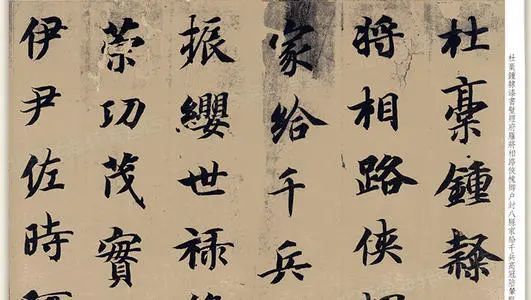 杜稾鍾隸漆書壁經府羅將相路俠槐卿户封八縣家給千兵高冠陪輦
杜稾鍾隸
將相路俠
家給千兵
振纓世祿
策功茂實
伊尹佐時